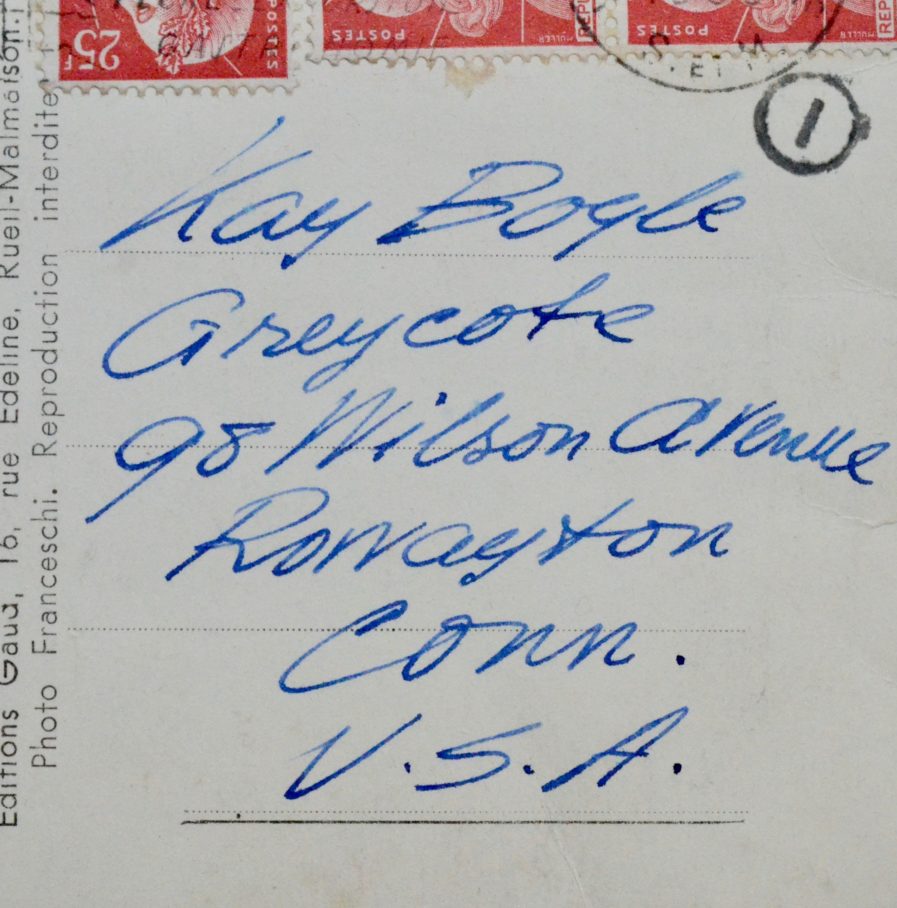 25F
POSTES
POSTES
MULLER
REP
POSTES
MULLER
REP
S. ET M.
Kay Boyle
Greycote
98 Wilson Avenue
Rowayton
Conn.
U.S.A.
Editions Gaud, 16, rue Edeline, Rueil-Malmaison.
Photo Franceschi. Reproduction interdite